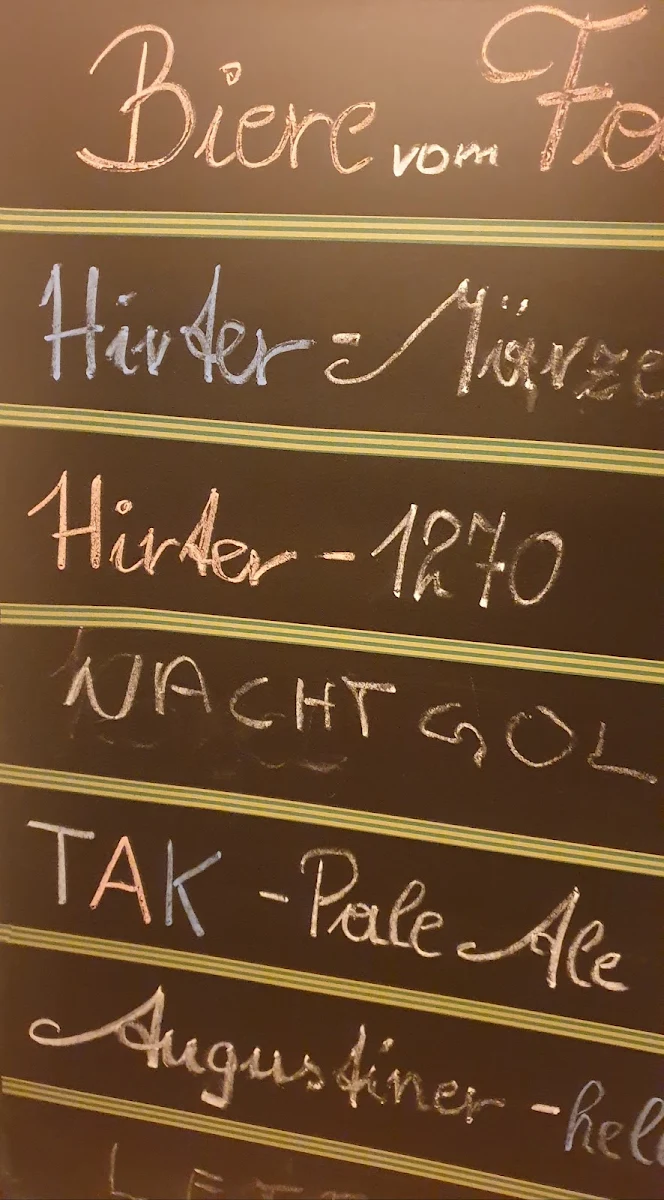 Biere vom Fa
Hirter - Märze
Hirter - 1270
NACHT GOL
TAK - Pale Ale
Augustiner - hel